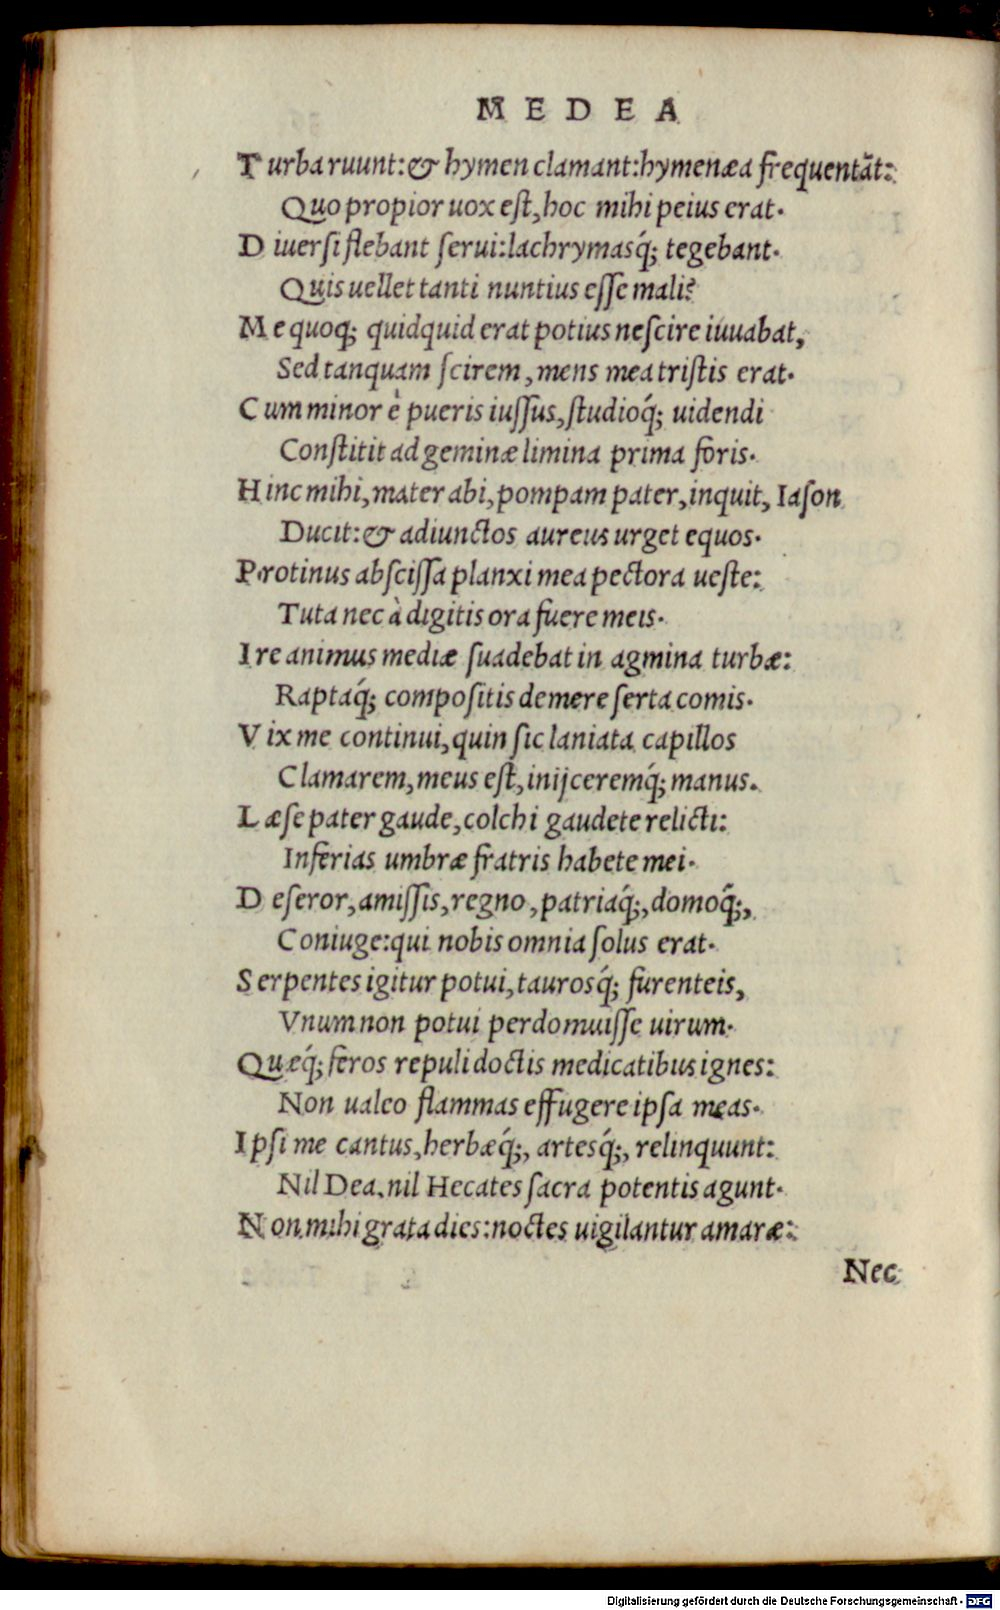 MEDEA
T urba ruunt: & hymen clamant: hymenæa frequentãt:
Quo propior uox est, hoc mihi peius erat.
D iuersi flebant serui: lachrymasq́; tegebant.
Quis uellet tanti nuntius esse mali?
M e quoq; quidquid erat potius nescire iuuabat,
Sed tanquam scirem, mens mea tristis erat.
C um minor è pueris iussus, studioq́; uidendi
Constitit ad geminæ limina prima foris.
H inc mihi, mater abi, pompam pater, inquit, Iason
Ducit: & adiunctos aureus urget equos.
P rotinus abscissa planxi mea pectora ueste:
Tuta nec à digitis ora fuere meis.
I re animus mediæ suadebat in agmina turbæ:
Raptaq́; compositis demere serta comis.
V ix me continui, quin sic laniata capillos
Clamarem, meus est, inijceremq́; manus.
L æse pater gaude, colchi gaudete relicti:
Inferias umbræ fratris habete mei.
D eseror, amissis, regno, patriaq́;, domoq́;,
Coniuge: qui nobis omnia solus erat.
S erpentes igitur potui, taurosq́; furenteis,
Vnum non potui perdomuisse uirum.
Quæq́; feros repuli doctis medicatibus ignes:
Non ualeo flammas effugere ipsa meas.
I psi me cantus, herbæq́;, artesq́;, relinquunt:
Nil Dea, nil Hecates sacra potentis agunt.
N on mihi grata dies: noctes uigilantur amaræ:
Nec
Digitalisierung gefördert durch die Deutsche Forschungsgemeinschaft - DFG